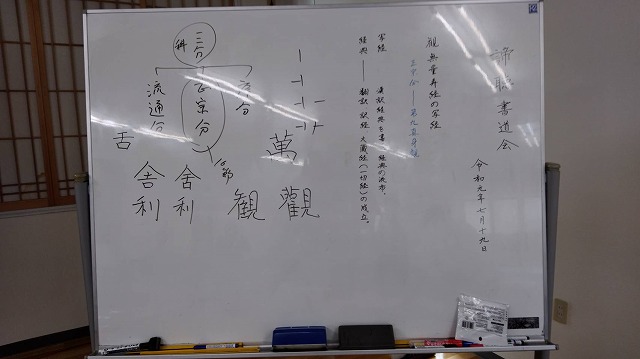 諦聴書道会
令和元年七月十九日
観無量寿経の写経
正宗分――第九真身観
写経　漢訳経典を書く 経典の流布、
経典――翻訳 訳経 大蔵経(一切経)の成立。
三分
科
序分
正宗分
流通分
萬
觀
観
舍利
舎利
舌